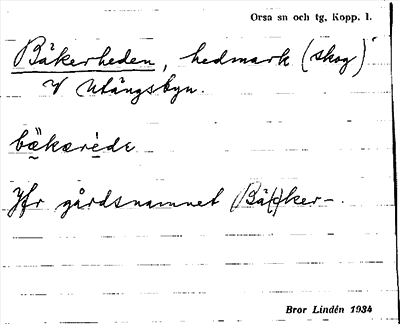 Orsa sn och tg, Kopp. l.
Bäkerheden, hedmark (skog)
V Utängsbyn.
bækæréde
Jfr gårdsnamnet (Bä(c)ker-.
Bror Lindén 1934